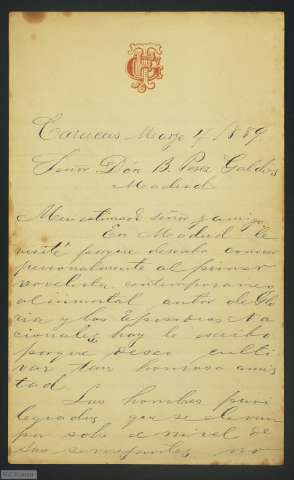 Caracas Marzo 4/1889
Señor Don B. Perez Galdós
Madrid
Mi estimado señor y amigo
En Madrid le
visité porque deseaba conocer
personalmente al primer
novelista contemporaneo
al inmortal autor de Glo
ria y los Episodios Na
cionales, hoy le escribo
porque deseo culti
var tan honrosa amis
tad.
Los hombres privi
legiados que se elevan
por sobre el nivel de
sus semejantes no